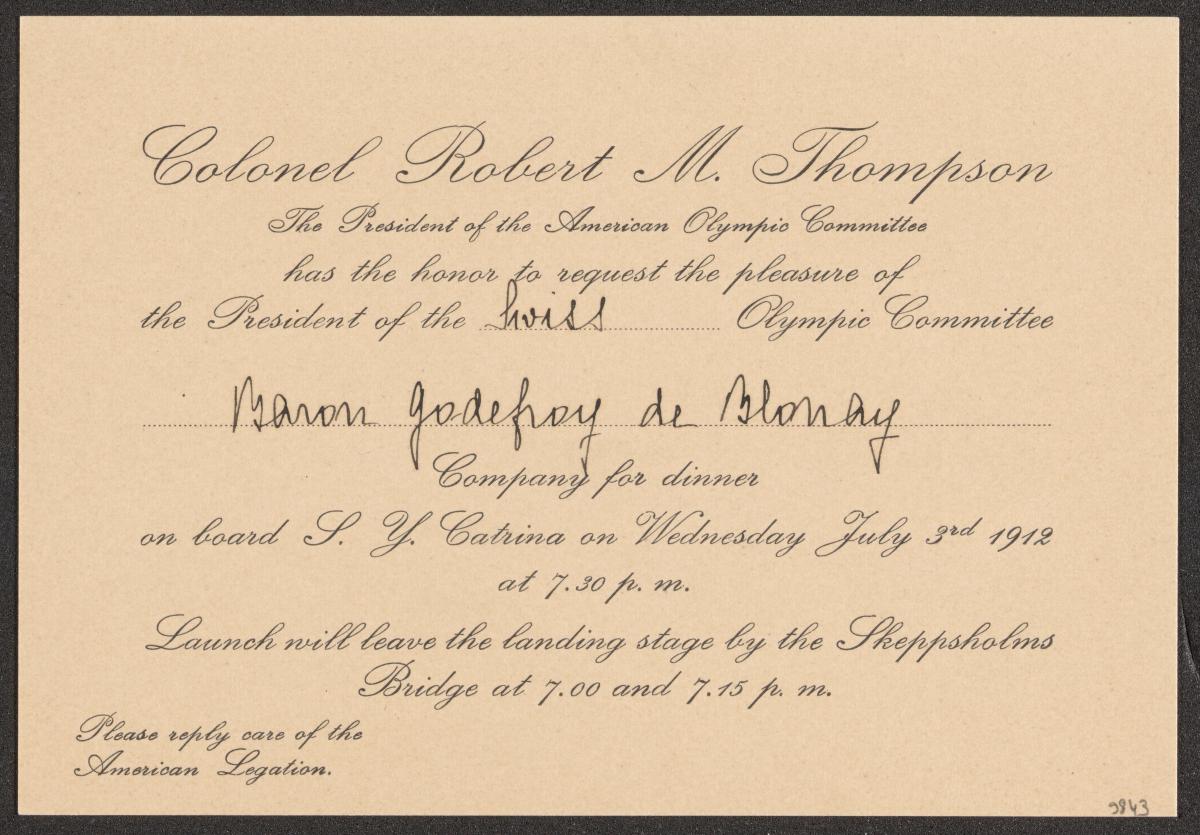 Colonel Robert M. Thompson
The President of the American Olympic Committee
has the honor to request the pleasure of
the President of the Swiss Olympic Committee
Baron Godefroy de Blonay
Company for dinner
on board S. Y. Catrina on Wednesday July 3rd 1912
at 7.30 p. m.
Launch will leave the landing stage by the Skeppsholms
Bridge at 7.00 and 7.15 p. m.
Please reply care of the
American Legation.
9843